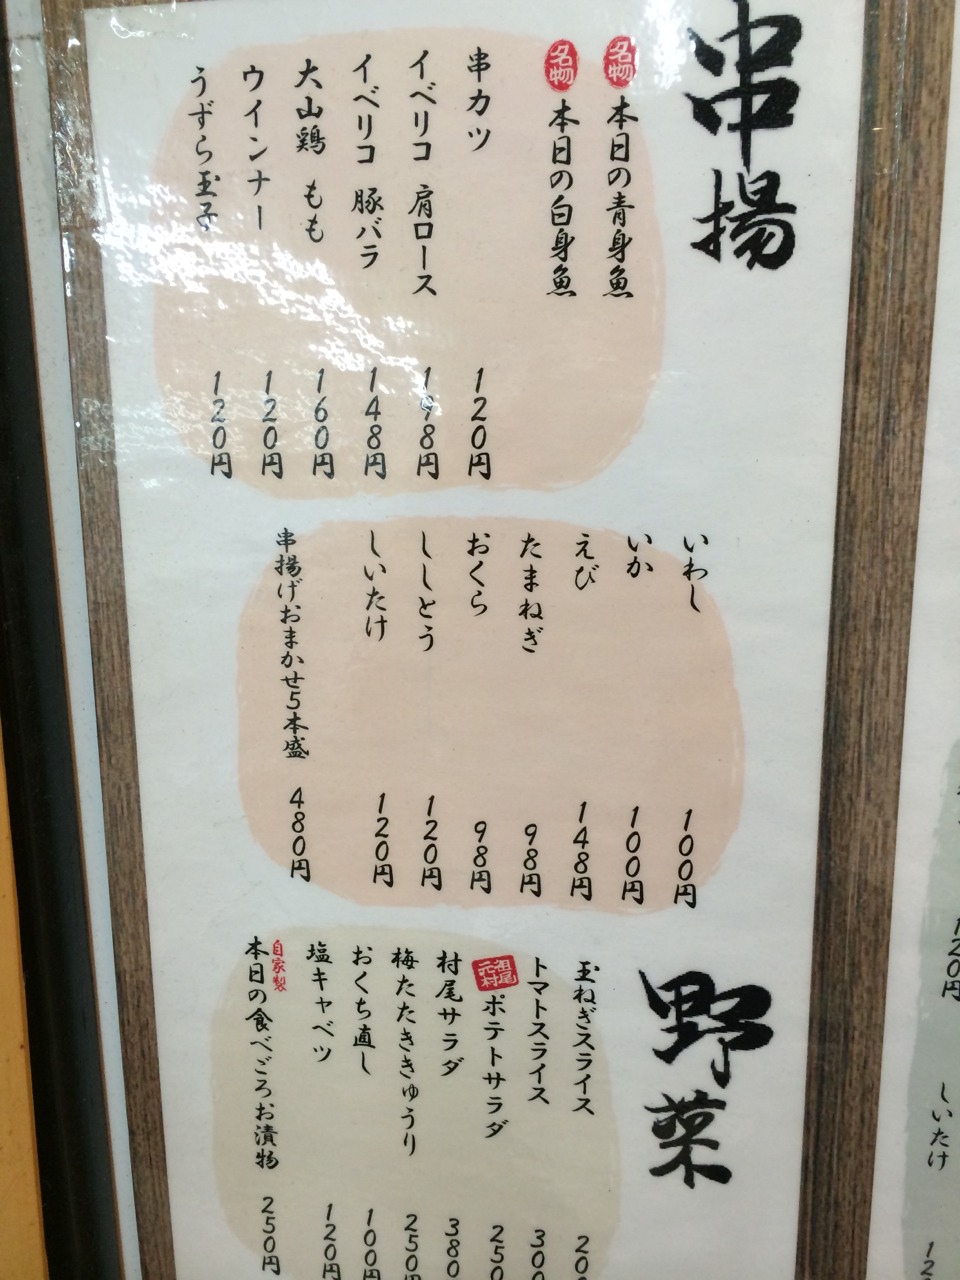 串揚
名物 本日の青身魚
名物 本日の白身魚
串カツ 120円
イベリコ 肩ロース 198円
イベリコ 豚バラ 148円
大山鶏 もも 160円
ウインナー 120円
うずら玉子 120円
いわし 100円
いか 100円
えび 148円
たまねぎ 98円
おくら 98円
ししとう 120円
しいたけ 120円
串揚げおまかせ5本盛 480円
野菜
玉ねぎスライス 200
トマトスライス 300
元祖村尾 ポテトサラダ 250
村尾サラダ 380
梅たたききゅうり 250円
おくち直し 100円
塩キャベツ 120円
自家製 本日の食べごろお漬物 250円
120円
しいたけ
12